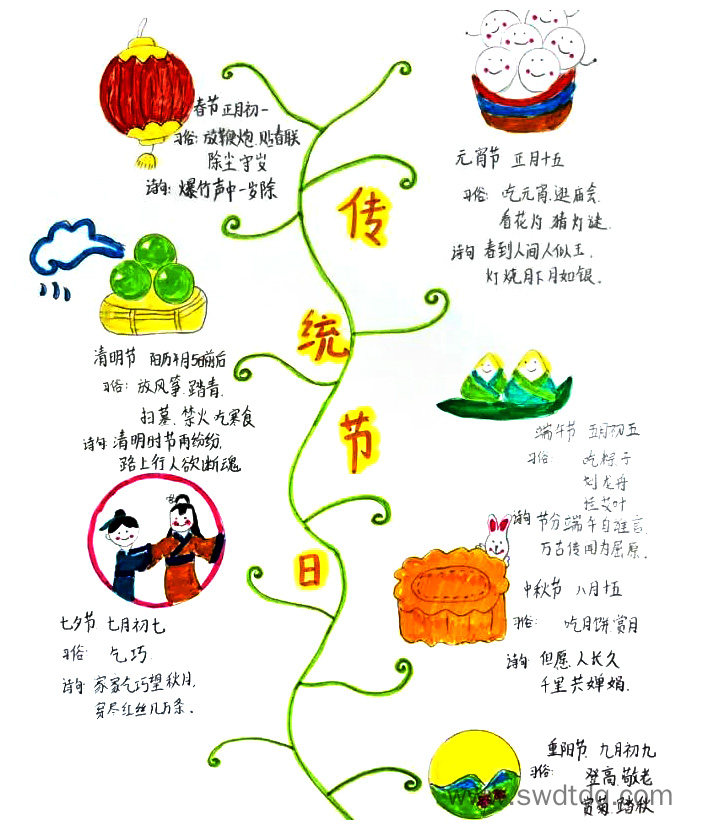 传统节日
春节 正月初一
习俗: 放鞭炮.贴春联
除尘守岁
诗句: 爆竹声中一岁除
元宵节 正月十五
习俗: 吃元宵.逛庙会.
看花灯 猜灯谜.
诗句 春到人间人似玉.
灯烧月下月如银.
清明节 阳历4月5日前后
习俗: 放风筝.踏青.
扫墓.禁火 吃寒食
诗句: 清明时节雨纷纷.
路上行人欲断魂
端午节 五月初五
习俗 吃粽子
划龙舟
挂艾叶
诗句 节分端午自谁言.
万古传闻为屈原.
七夕节 七月初七
习俗: 乞巧.
诗句: 家家乞巧望秋月.
穿尽红丝几万条.
中秋节 八月十五
习俗: 吃月饼.赏月
诗句: 但愿人长久
千里共婵娟.
重阳节. 九月初九
习俗: 登高.敬老
赏菊.踏秋
www.swdtdq.com